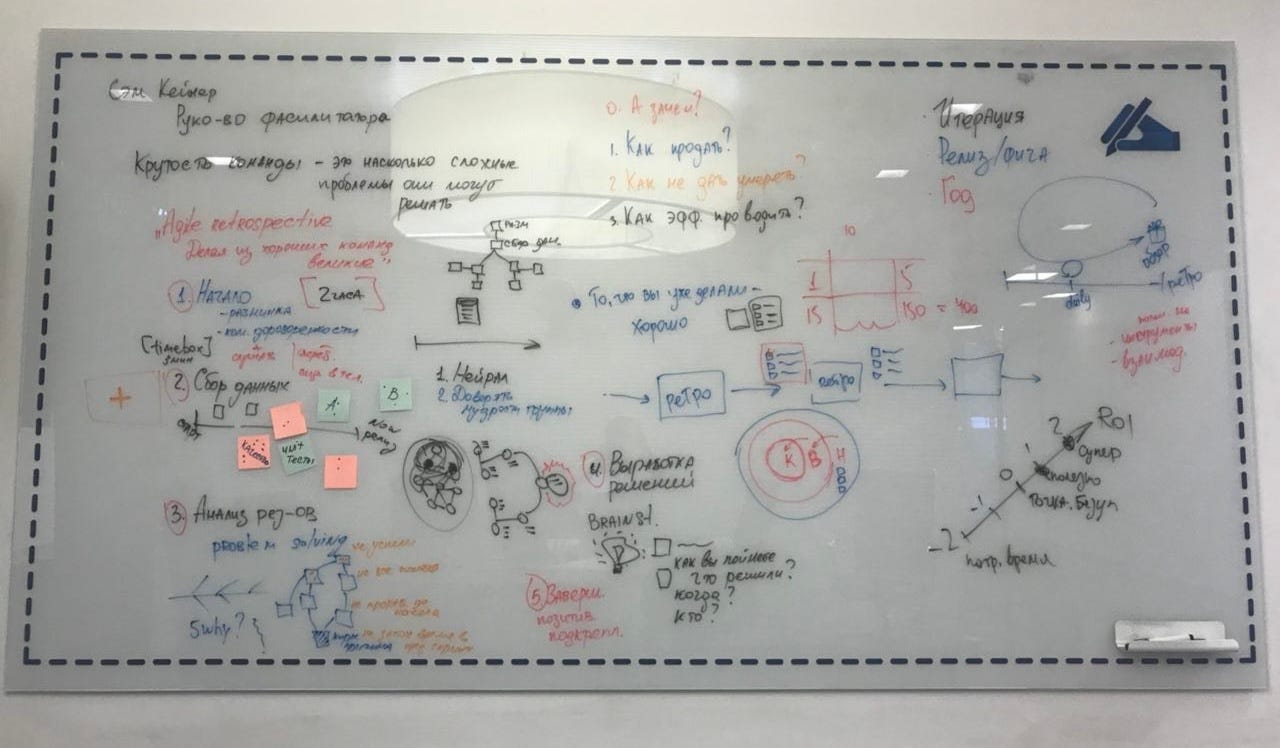 Сэм Кейнер
Руко-во фасилитатора
Крутость команды - это насколько сложные
проблемы они могут
решать
"Agile retrospective
Делая из хороших команд
великие"
0. А зачем?
1. Как продать?
2 Как не дать умереть?
3. Как эфф. проводить?
Итерация
Релиз/Фича
Год
Разм
Сбор дан.
1. Начало
[2 часа]
- разминка
[timebox]
5мин
2. Сбор данных
старт
Now
релиз
Качество
Unit
Тесты
A
B
1. Нейрал
2. Доверять
мудрости группы
То, что вы уже делали -
хорошо
10
1
5
15
150 = 400
ретро
ретро
daily
обзор
ретро
- инструменты
- взаимод.
К
В
Н
3. Анализ рез-ов
problem solving
не успели
5 why?
4 Выработка
решений
Brainst.
как вы поймете
что решили?
когда?
кто?
5. Заверш.
позитив.
подкрепл.
2
ROI
супер
полезно
0
точка безуб
-1
-2
потр. время